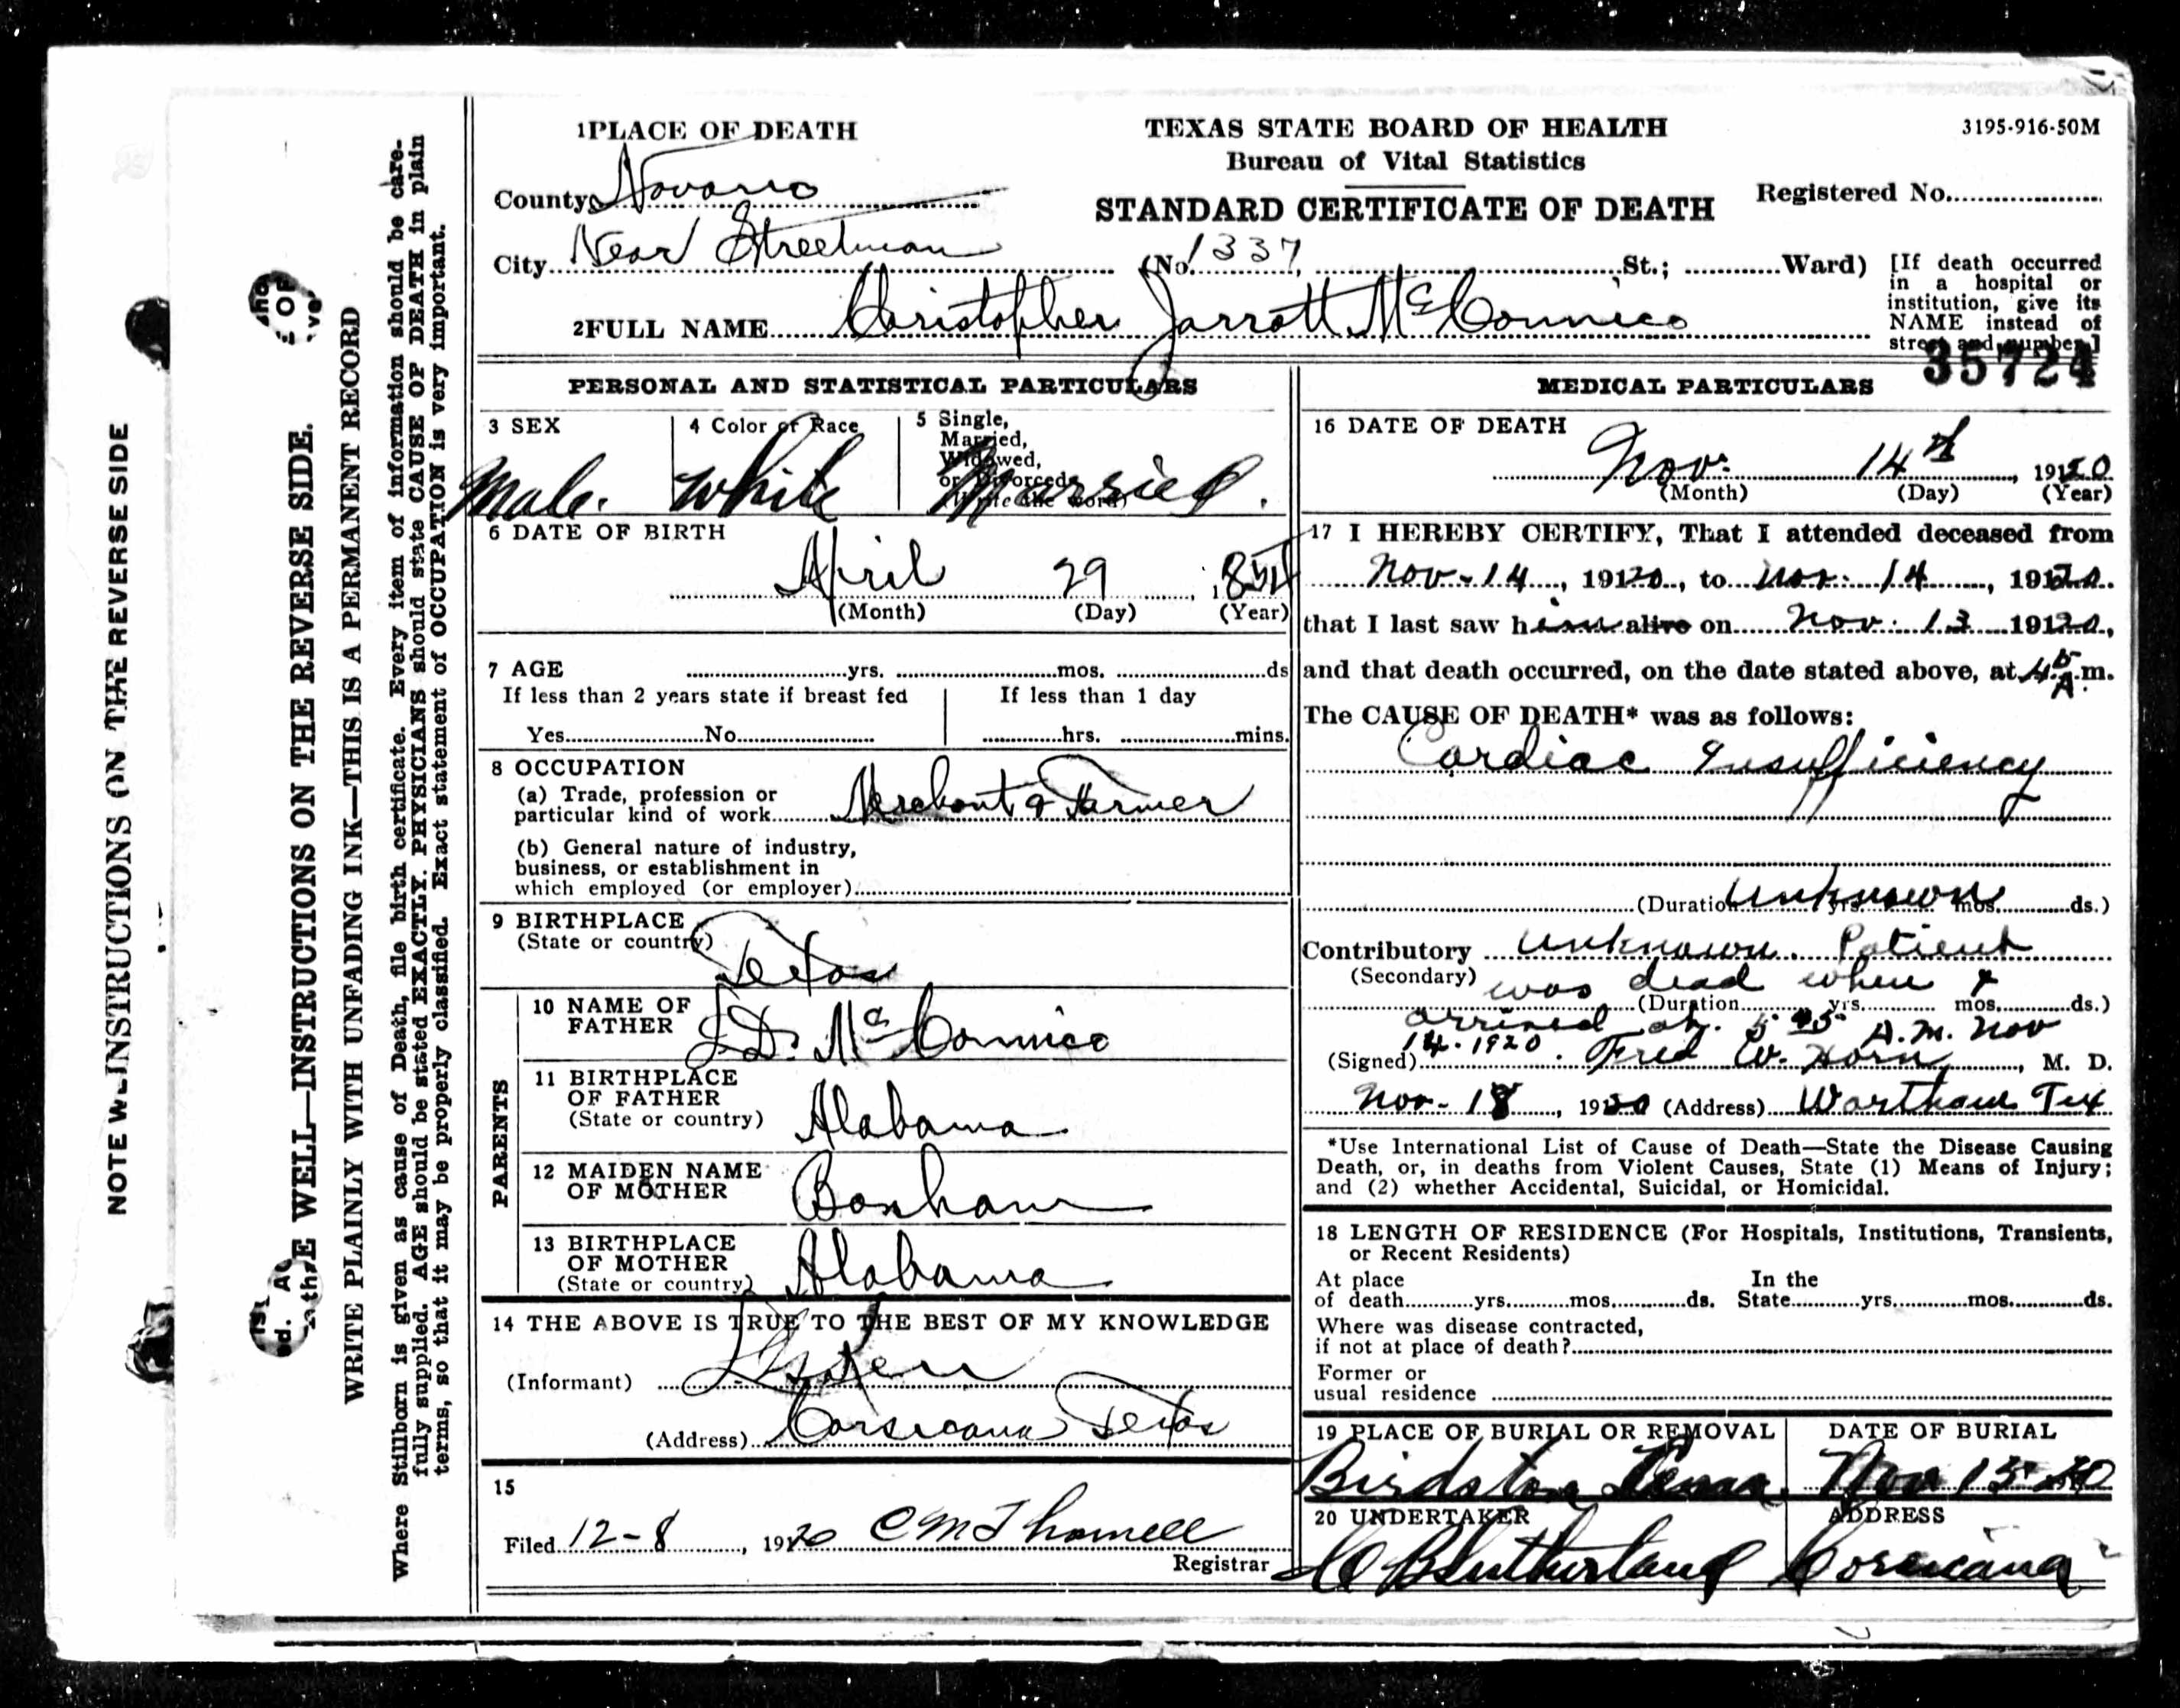 1PLACE OF DEATH
TEXAS STATE BOARD OF HEALTH
3195-916-50M
Bureau of Vital Statistics
County Navarro
STANDARD CERTIFICATE OF DEATH
Registered No.
City Near Streetman (No. 1337, St.; Ward)
[If death occurred
in a hospital or
institution, give its
NAME instead of
street and number.]
2FULL NAME Christopher Jarrott McConnico
35724
PERSONAL AND STATISTICAL PARTICULARS
3 SEX
Male.
4 Color or Race
White
5 Single,
Married,
Widowed,
or Divorced
(Write the word)
Married.
6 DATE OF BIRTH
April 29, 185
(Month) (Day) (Year)
7 AGE yrs. mos. ds
If less than 2 years state if breast fed
Yes No
If less than 1 day
hrs. mins.
8 OCCUPATION
(a) Trade, profession or
particular kind of work Merchant & Farmer
(b) General nature of industry,
business, or establishment in
which employed (or employer)
9 BIRTHPLACE
(State or country) Texas
PARENTS
10 NAME OF
FATHER D. McConnico
11 BIRTHPLACE
OF FATHER
(State or country) Alabama
12 MAIDEN NAME
OF MOTHER Bonham
13 BIRTHPLACE
OF MOTHER
(State or country) Alabama
14 THE ABOVE IS TRUE TO THE BEST OF MY KNOWLEDGE
(Informant)
(Address) Corsicana Texas
15
Filed 12-8, 1920 C M
Registrar
MEDICAL PARTICULARS
16 DATE OF DEATH
Nov. 14th, 1920
(Month) (Day) (Year)
17 I HEREBY CERTIFY, That I attended deceased from
Nov-14, 19120, to Nov. 14, 1920
that I last saw him alive on Nov. 13 19120,
and that death occurred, on the date stated above, at 45 A.m.
The CAUSE OF DEATH* was as follows:
Cardiac Insufficiency
(Duration Unknown yrs. mos. ds.)
Contributory Unknown. Patient
(Secondary) was dead when I
(Duration yrs. mos. ds.)
arrived at 5 45 A.M. Nov
14-1920.
(Signed) Fred W. Horn, M. D.
Nov-18, 1920 (Address) Wortham Tex
*Use International List of Cause of Death—State the Disease Causing
Death, or, in deaths from Violent Causes, State (1) Means of Injury;
and (2) whether Accidental, Suicidal, or Homicidal.
18 LENGTH OF RESIDENCE (For Hospitals, Institutions, Transients,
or Recent Residents)
At place
of death yrs. mos. ds.
In the
State yrs. mos. ds.
Where was disease contracted,
if not at place of death?
Former or
usual residence
19 PLACE OF BURIAL OR REMOVAL
Birdston
DATE OF BURIAL
Nov 15 20
20 UNDERTAKER
Sutherland
ADDRESS
Corsicana
NOTE WELL—INSTRUCTIONS ON THE REVERSE SIDE
E WELL—INSTRUCTIONS ON THE REVERSE SIDE.
WRITE PLAINLY WITH UNFADING INK—THIS IS A PERMANENT RECORD
Where Stillborn is given as cause of Death, file birth certificate. Every item of information should be care-
fully supplied. AGE should be stated EXACTLY. PHYSICIANS should state CAUSE OF DEATH in plain
terms, so that it may be properly classified. Exact statement of OCCUPATION is very important.